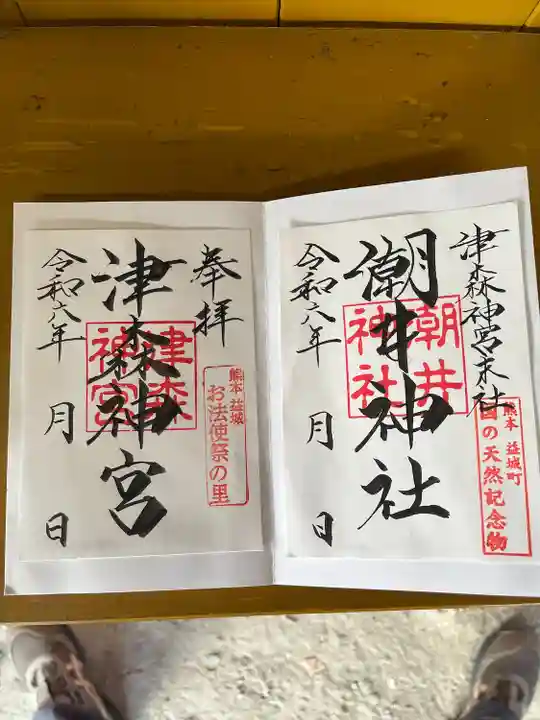 津森神宮末社
潮井神社
令和六年　月　日
潮井
神社
熊本 益城町
国の天然記念物
奉拝
津森神宮
令和六年　月　日
津森
神宮
熊本 益城
お法使祭の里